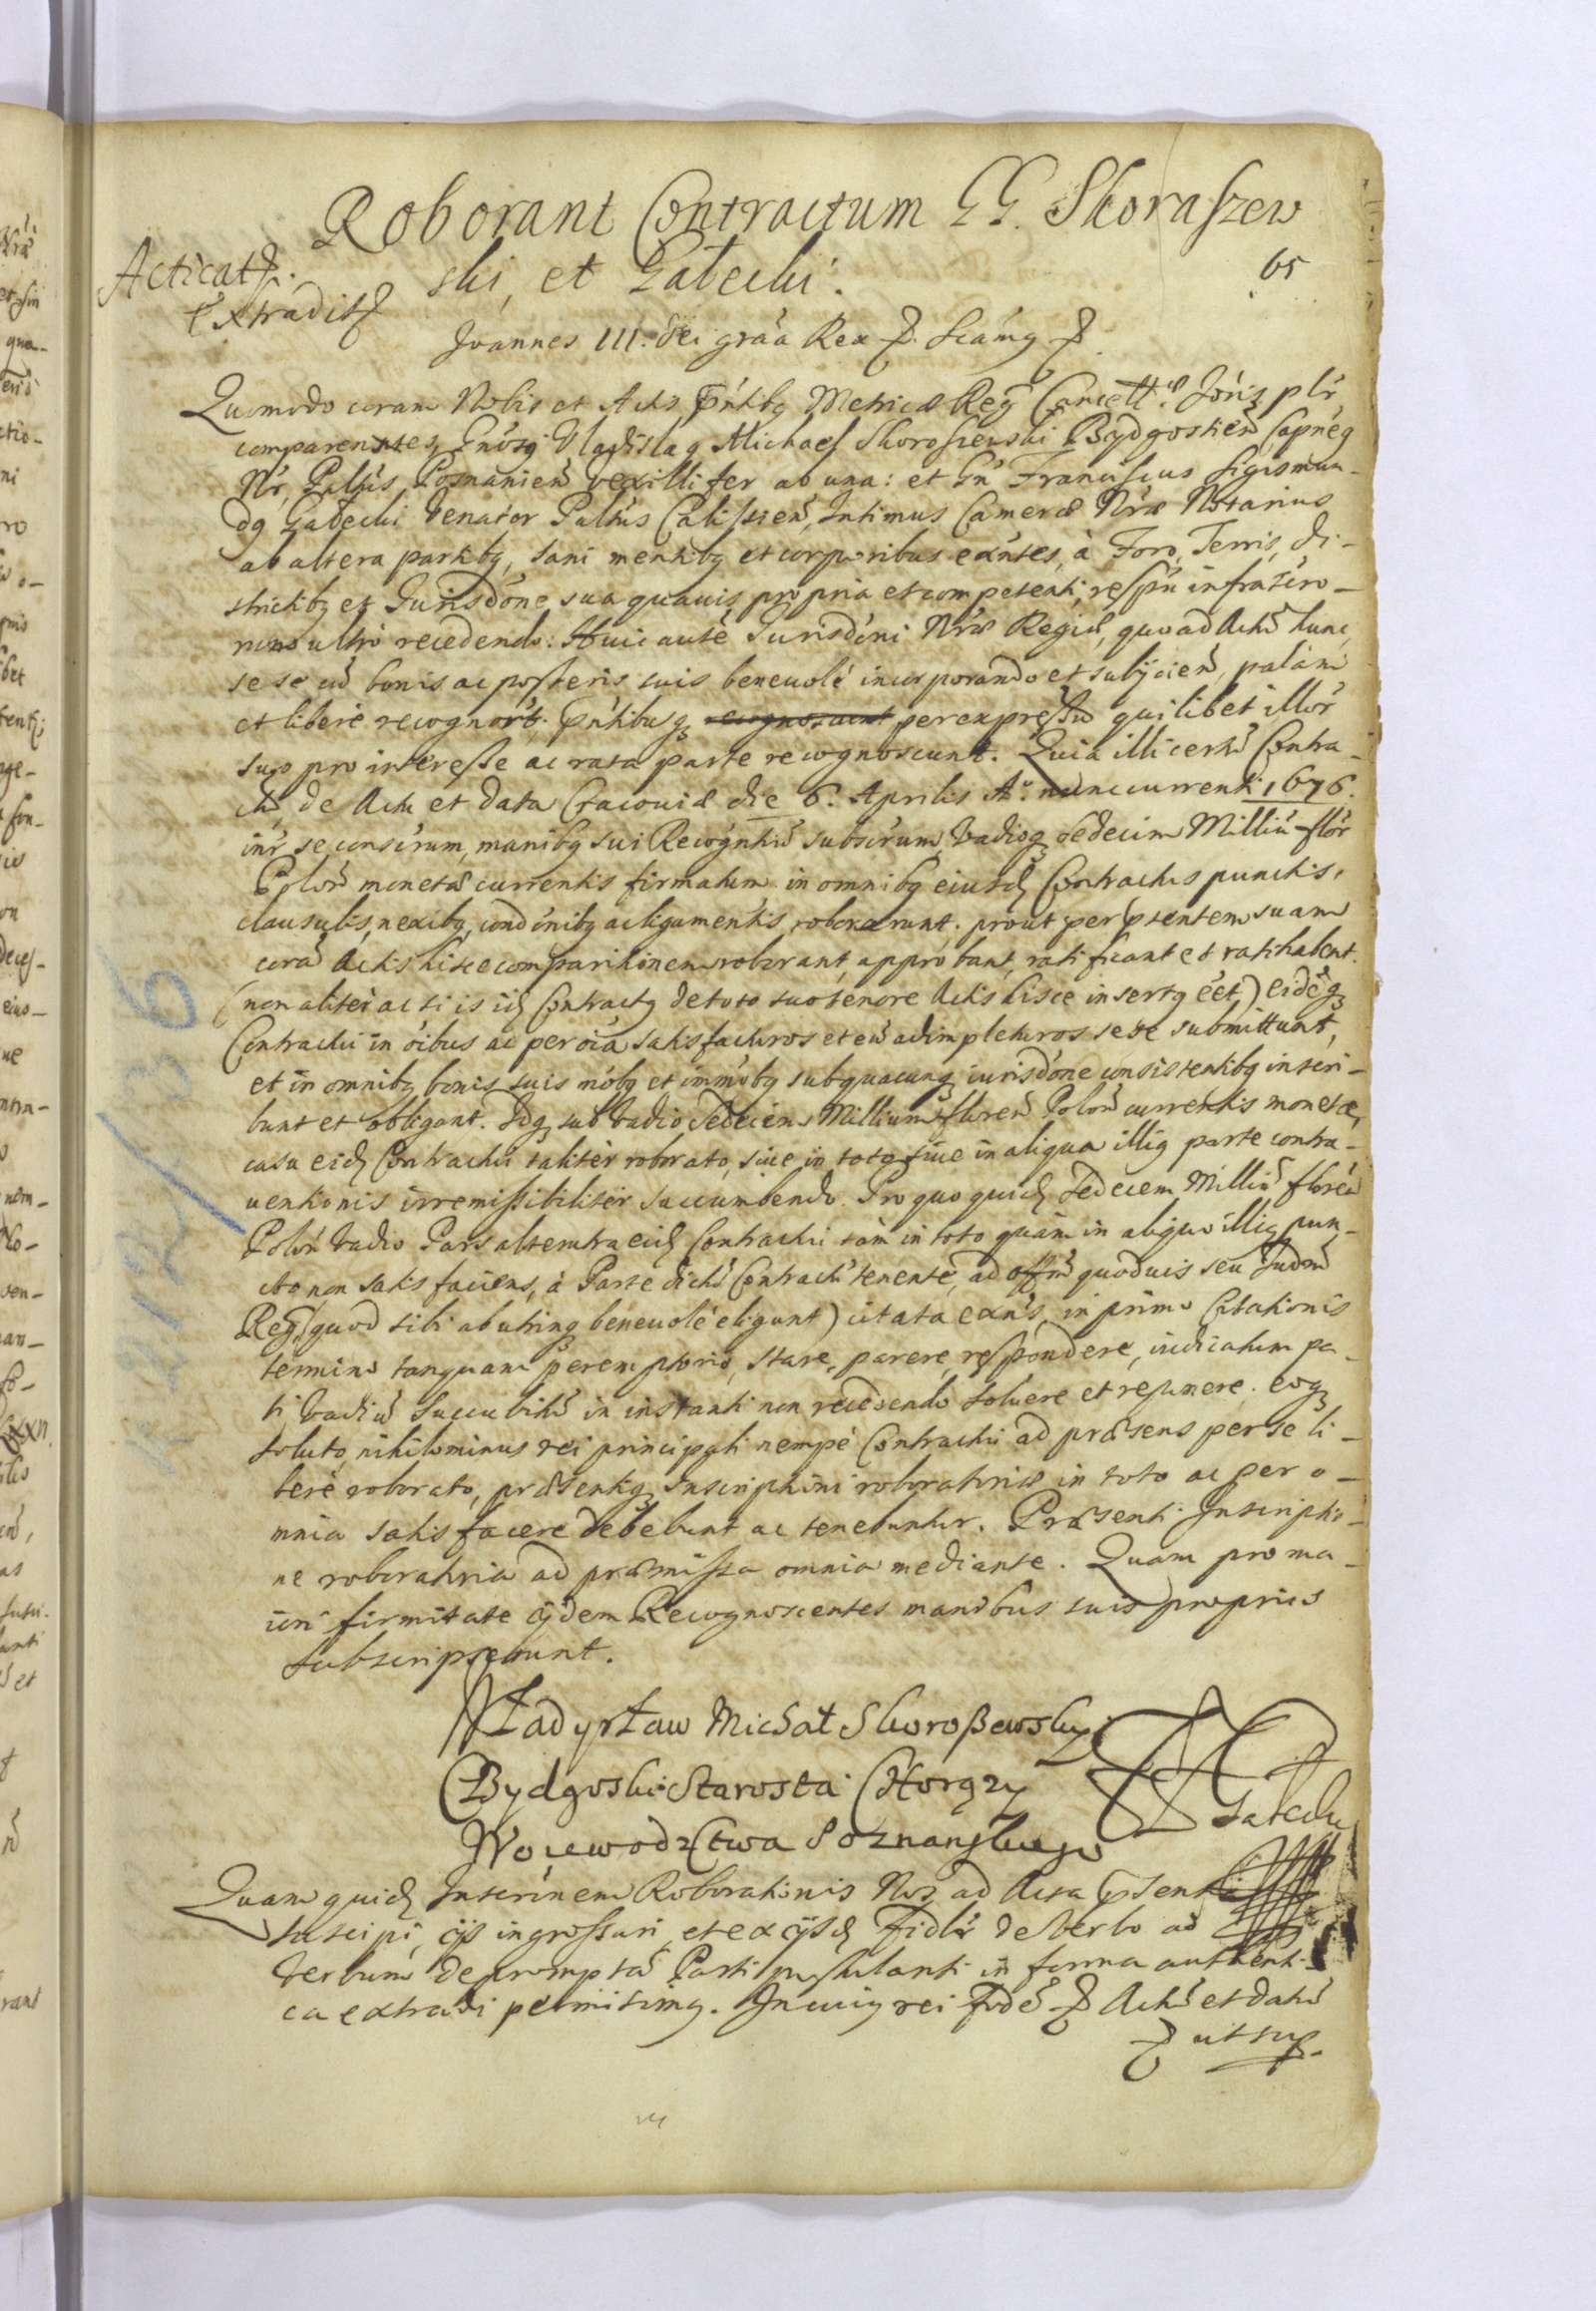 Roborant Contractum GG. Skoraszew
ski, et Gałecki.
65
Acticat.
Extradit.
Joannes III. Dei gráa Rex Scámg
Quomodo coram Nobis et Actis pńtibg Metricæ Reg Cancell. plr
comparentes, Gńosg Vladislag Michael Skoroszewski Bydgostień Capńeg
Nr, Paltús Posnanień Vexillifer ab una: et Gń Franciscus Sigismun-
dg Gałecki Venator Paltús Calissień, Intimus Cameræ Nræ Notarius
ab altera partibg, sani mentibg et corporibus exńtes, à Foro, Terris, Di-
strictibg et Jurisdóne sua quauis propria et competenti, respu infrascro-
rum ultro recedendo: Huic auté Jurisdóni Nræ Regiæ, quoad Actũ hunc,
se se cũ bonis ac posteris suis beneuolé incorporando et subijcień, palám
et liberè recognorť. pńtibusq recognoscunt per expressũ quilibet illor
suo pro interesse ac rata parte recognoscunt. Quia illi certũ Contra-
ctũ, de Actu et Data Cracouiæ die 6. Aprilis Aº. nunc currenti 1676.
intr se conscrum, manibg sui Recogntiũ subscrum, Vadioq sedecim Milliũ flor
Poloń monetæ currentis firmatum in omnibg eiusd Contractus punctis,
clausulis, nexibg, condónibg ac ligamentis roborarunt. prout per pńtentem suam
corã Actis hisce comparitionem roborant, approbant, ratificant et ratihabent.
(non aliter ac si is id Contractg de toto suo tenore Actis hisce insertg eét) eidéq
Contractui in oíbus ac per oía satisfacturos et eũ adimpleturos sese submittunt,
et in omnibg bonis suis mobg et immobg sub quacunq iurisdóne consistentibg inscri-
bunt et obligant. Idq sub Vadio Sedecim Millium floreń Poloń currentis monetæ,
casu eid Contractui taliter roborato, siue in toto siue in aliqua illig parte contra-
uentionis irremissibiliter succumbendo. Pro quo quid sedecem Milliũ floreń
Poloń Vadio Pars alterutra eid Contractui tàm in toto quàm in aliquo illig pun-
cto non satisfaciens, à Parte dictũ Contractũ tenente, ad offm quoduis seu Judm
Reg (quod sibi ab utrinq beneuolé eligunt) citata exńs, in primo Citationis
termino tanquam peremptorio, stare, parere, respondere, iudicatum pa-
ti, Vadiũ succubitũ in instanti non recedendo soluere et reponere. eoq
soluto, nihilominus rei principali nempè Contractui ad præsens per se li-
berè roborato, præsentiq Inscriptioni roboratoriæ in toto ac per o-
mnia satisfacere debebunt ac tenebuntur. Præsenti Inscriptio-
ne roboratoria ad præmissa omnia mediante. Quam pro ma-
iori firmitate ijdem Recognoscentes manibus suis proprijs
subscripserunt.
Władysław Michał Skoroßewsky
Bydgoski Starosta Chorązy
Woiewodztwa Poznanskiego
Gałecki
Quam quid Inscriónem Roborationis Nos ad Acta pńsentia
suscipi, ijs ingrossari, et ex ijsd fidelr de Verbo ad
Verbum depromptã Parti postulanti in forma authenti-
ca extradi permisimg. In cuig rei fidé Actũ et Datũ
ut sup.